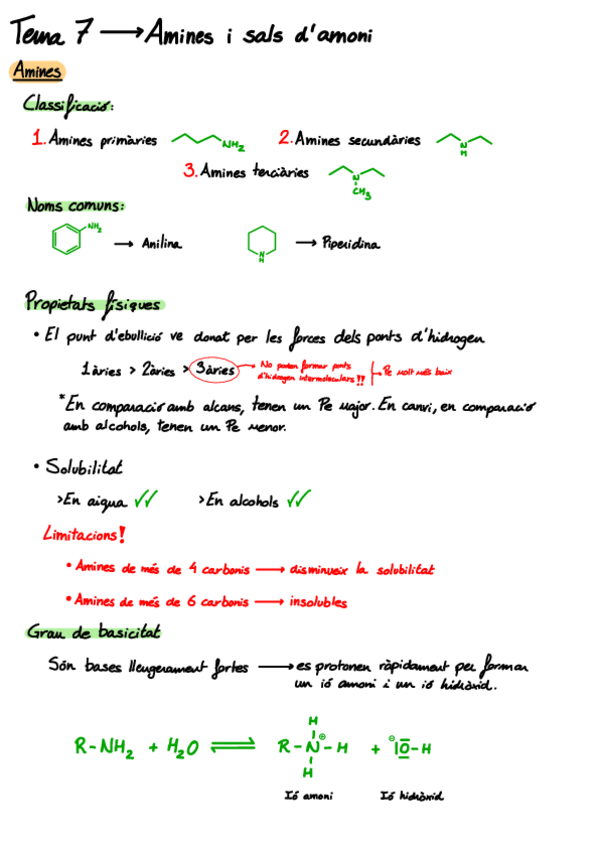 Tema 7 ⟶ Amines i sals d'amoni
Amines
Classificació:
1. Amines primàries NH2 2. Amines secundàries N H
3. Amines terciàries N CH3
Noms comuns:
NH2 → Anilina N H → Piperidina
Propietats físiques
• El punt d'ebullició ve donat per les forces dels ponts d'hidrogen
1àries > 2àries > 3àries → No poden formar ponts d'hidrogen intermoleculars!! → Pe molt més baix
*En comparació amb alcans, tenen un Pe major. En canvi, en comparació
amb alcohols, tenen un Pe menor.
• Solubilitat
>En aigua ✓✓ >En alcohols ✓✓
Limitacions!
• Amines de més de 4 carbonis ⟶ disminueix la solubilitat
• Amines de més de 6 carbonis ⟶ insolubles
Grau de basicitat
Són bases lleugerament fortes ⟶ es protonen ràpidament per formar
un ió amoni i un ió hidròxid.
H
R-NH2 + H2O ⇌ R-N⊕-H + ⊖IO-H
H
Ió amoni Ió hidròxid